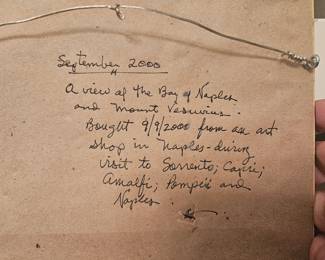 September 2000
A view of the Bay of Naples
and Mount Vesuvius.
Bought 9/9/2000 from an art
shop in Naples-during
visit to Sorrento; Capri;
Amalfi; Pompeii and
Naples.